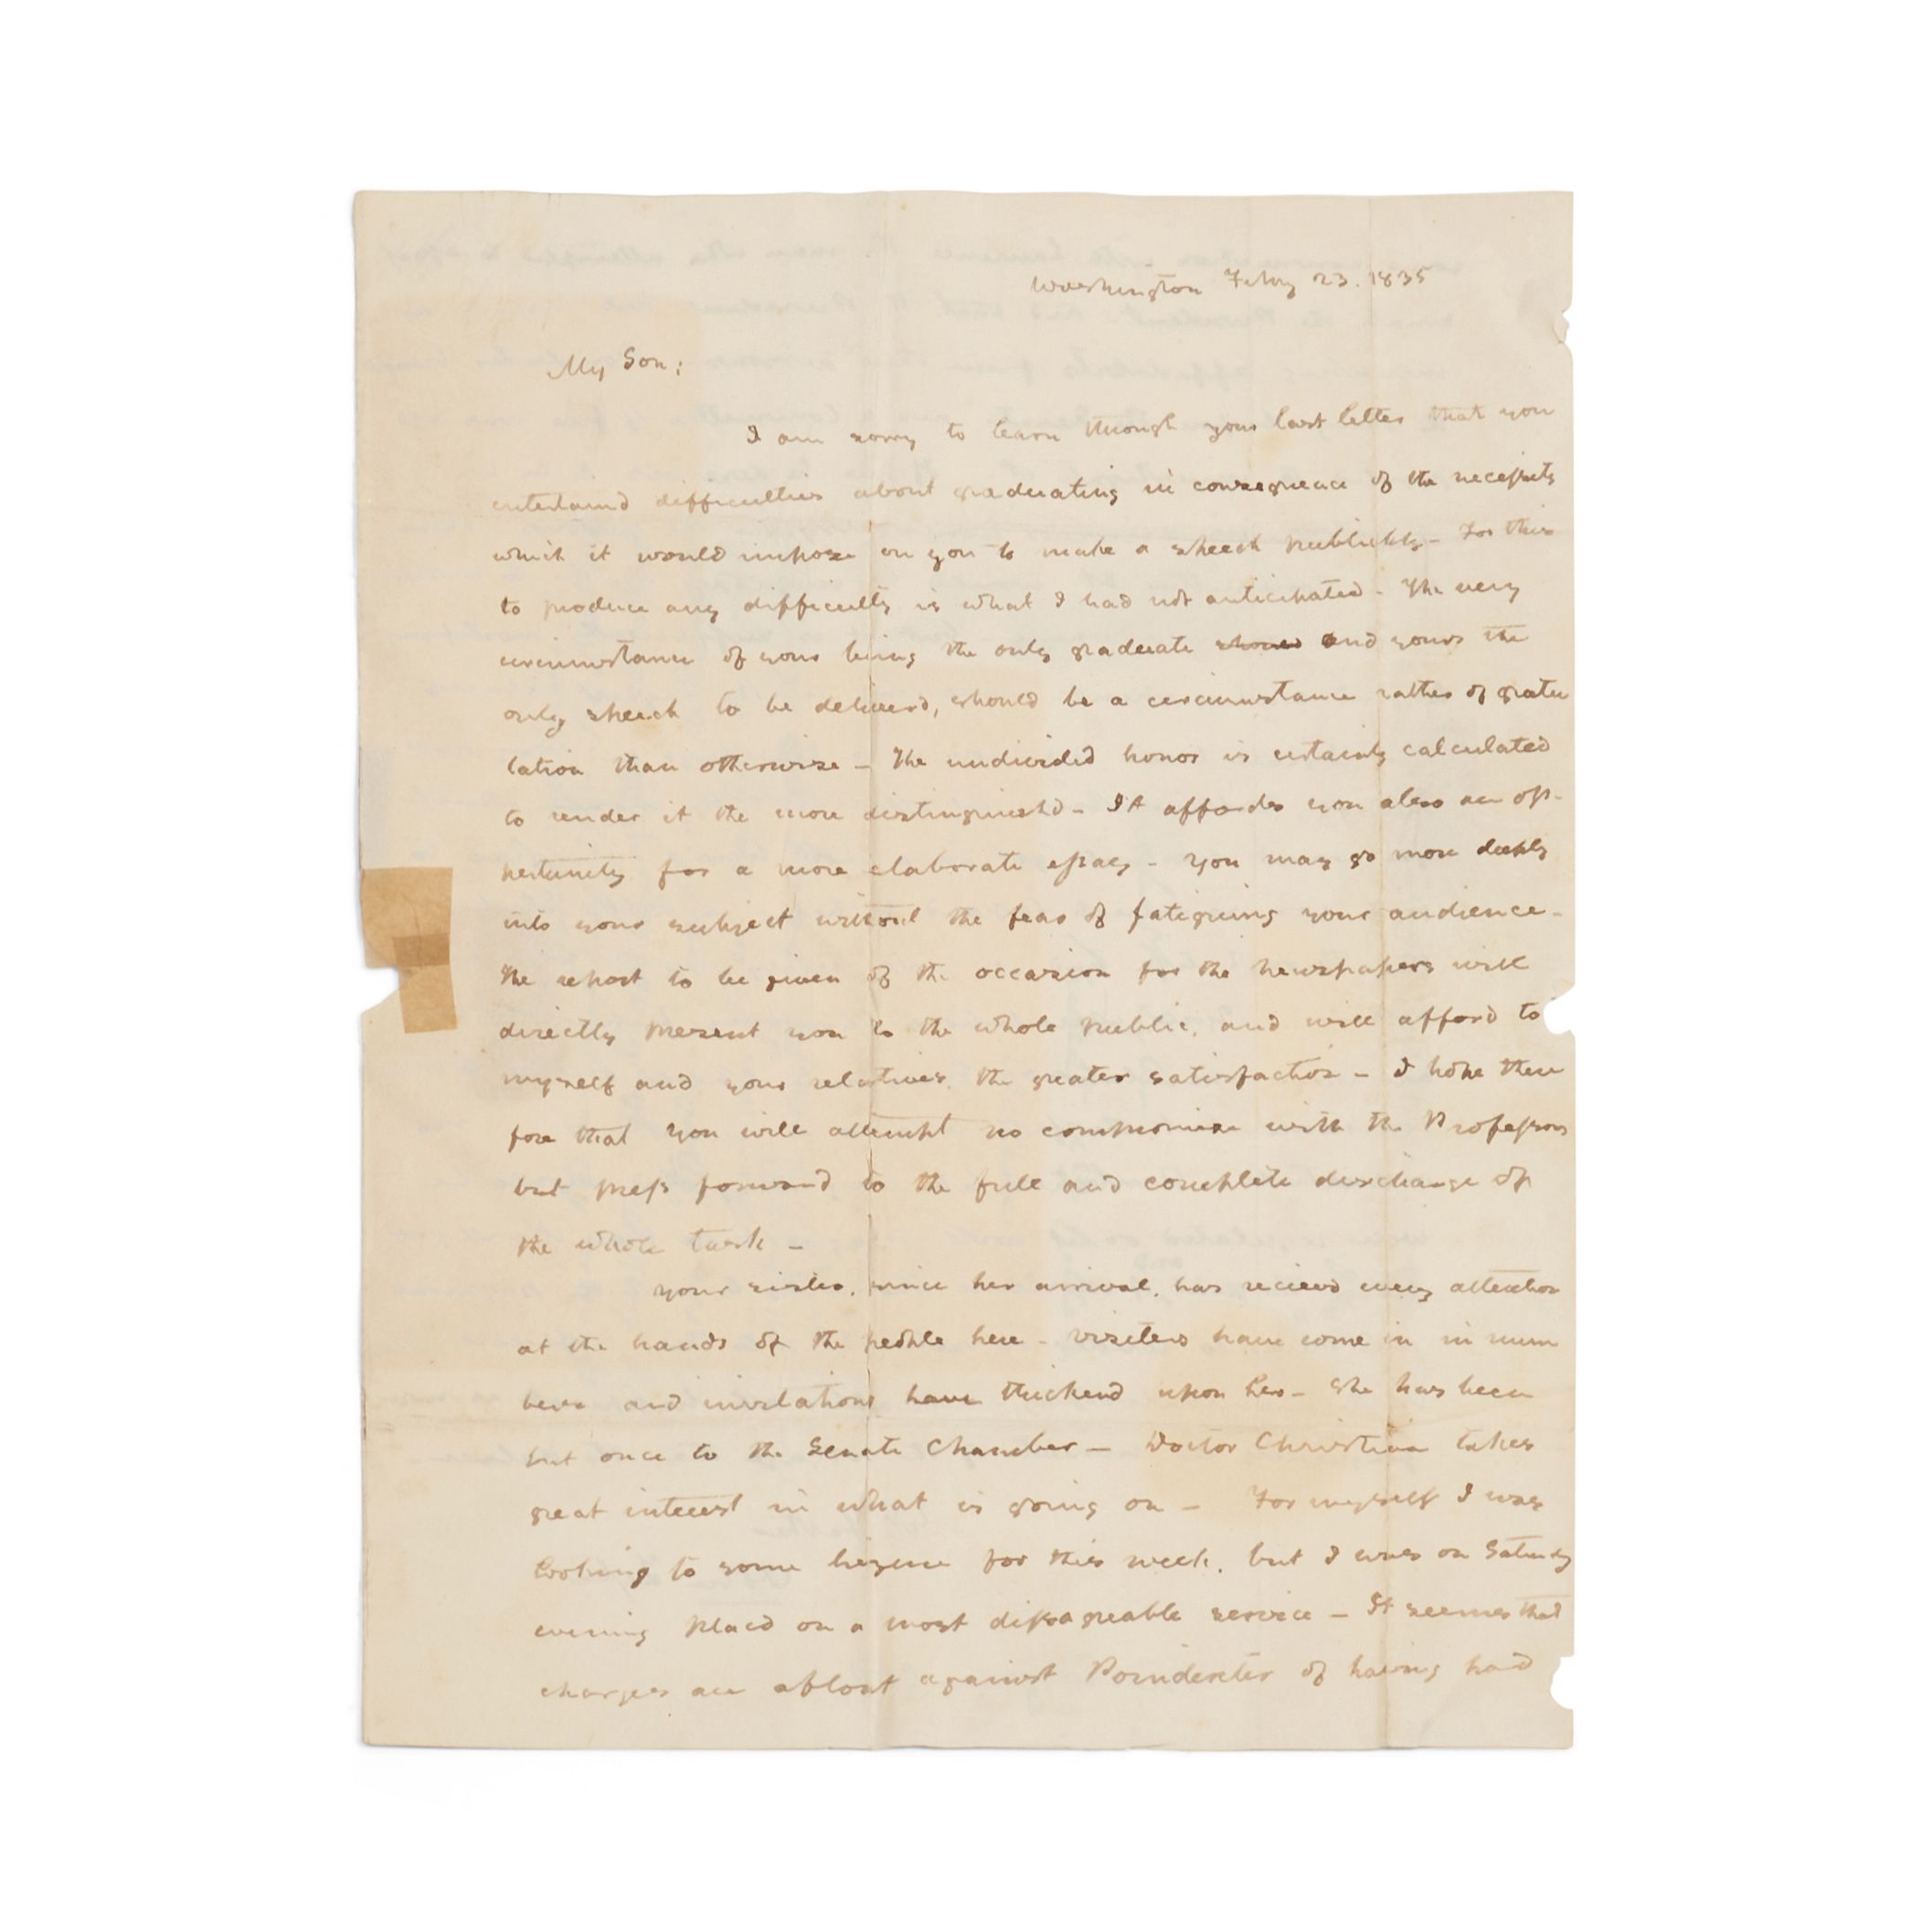 Washington Feby 23. 1835
My Son;
I am sorry to learn through your last letter that you
entertaind difficulties about graduating in consequence of the necessity
which it would impose on you to make a speech publickly - For this
to produce any difficulty is what I had not anticipated - The very
circumstance of your being the only graduate and yours the
only speech to be deliverd, should be a circumstance rather of gratu
lation than otherwise - The undivided honor is certainly calculated
to render it the more distinguishd - It affords you also an op-
pertunity for a more elaborate essay - You may go more deeply
into your subject without the fear of fatiguing your audience -
The report to be given of the occasion for the newspapers will
directly present you to the whole public, and will afford to
myself and your relatives, the greater satisfaction - I hope there
fore that you will attempt no compromise with the Professors
but press forward to the full and complete discharge of
the whole task -
Your sister, since her arrival, has recievd every attention
at the hands of the people here - visiters have come in in num
bers and invitations have thickend upon her - She has been
but once to the Senate Chamber - Doctor Christian takes
great interest in what is going on - For myself I was
looking to some liesure for this week, but I was on Saturday
evening placd on a most dissagreable service - It seemes that
charges are afloat against Poindexter of having had